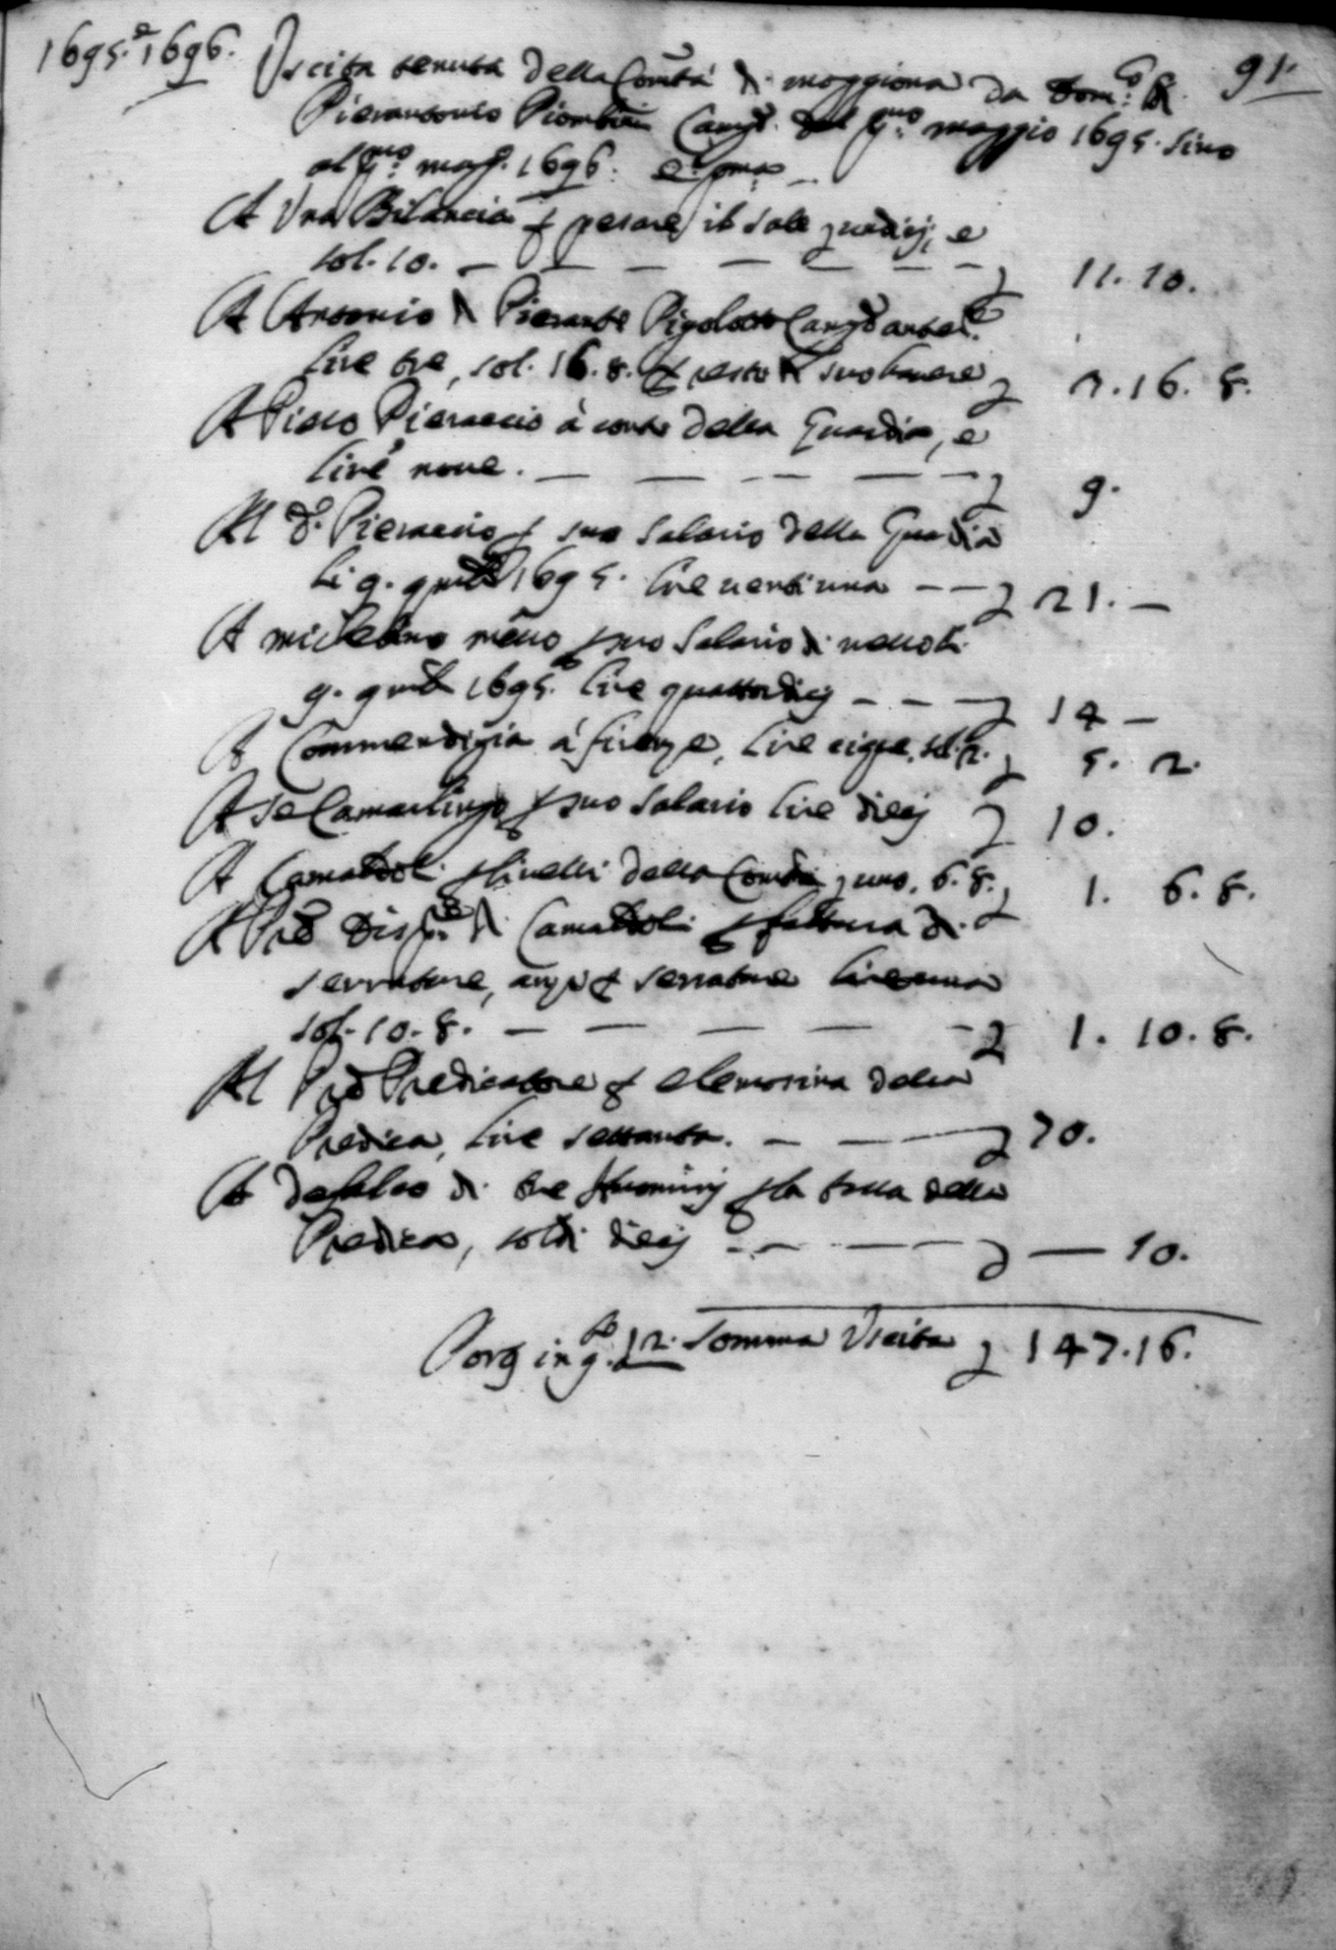 1695. e 1696.
91.
Uscita tenuta della Com.tà di moggiona da Dom.co di
Pierantonio Piombini Cam.o dal p.mo maggio 1695. sino
al p.mo magg. 1696. e p.ma
A Una Bilancia p pesare il sale undicj, e
sol. 10. — — — — — — 11. 10.
A Antonio di Pierante Pigolotto Cam.o antec.e
lire tre, sol. 16. 8. p resto di suo havere 3. 16. 8.
A Piero Pieraccio à conto della Guardia, e
lire nove. — — — — — 9.
Al d.o Pieraccio p suo salario della Guardia
li 9. 1695. lire uentiuna — — 21. —
A michelino p suo salario di
9. 1695. lire quattordicj — — — 14 —
A Commendizia à firenze, lire cique, sol. 2. 5. 2.
A Se Camarlingo p suo salario lire diecj 10.
A Camaldoli p livelli della Com.tà uno. 6. 8. 1. 6. 8.
A Prè Disp.re di Camaldoli p fattura di
serrature, anzi p serrature lire una
sol. 10. 8. — — — — — 1. 10. 8.
Al Prè Predicatore p elemosina della
Predica, lire settanta. — — — 70.
A defalco di tre huominj p la tassa della
Predica, soldi diecj — — — — — 10.
Porg in q.o 12. Somma Uscita 147. 16.